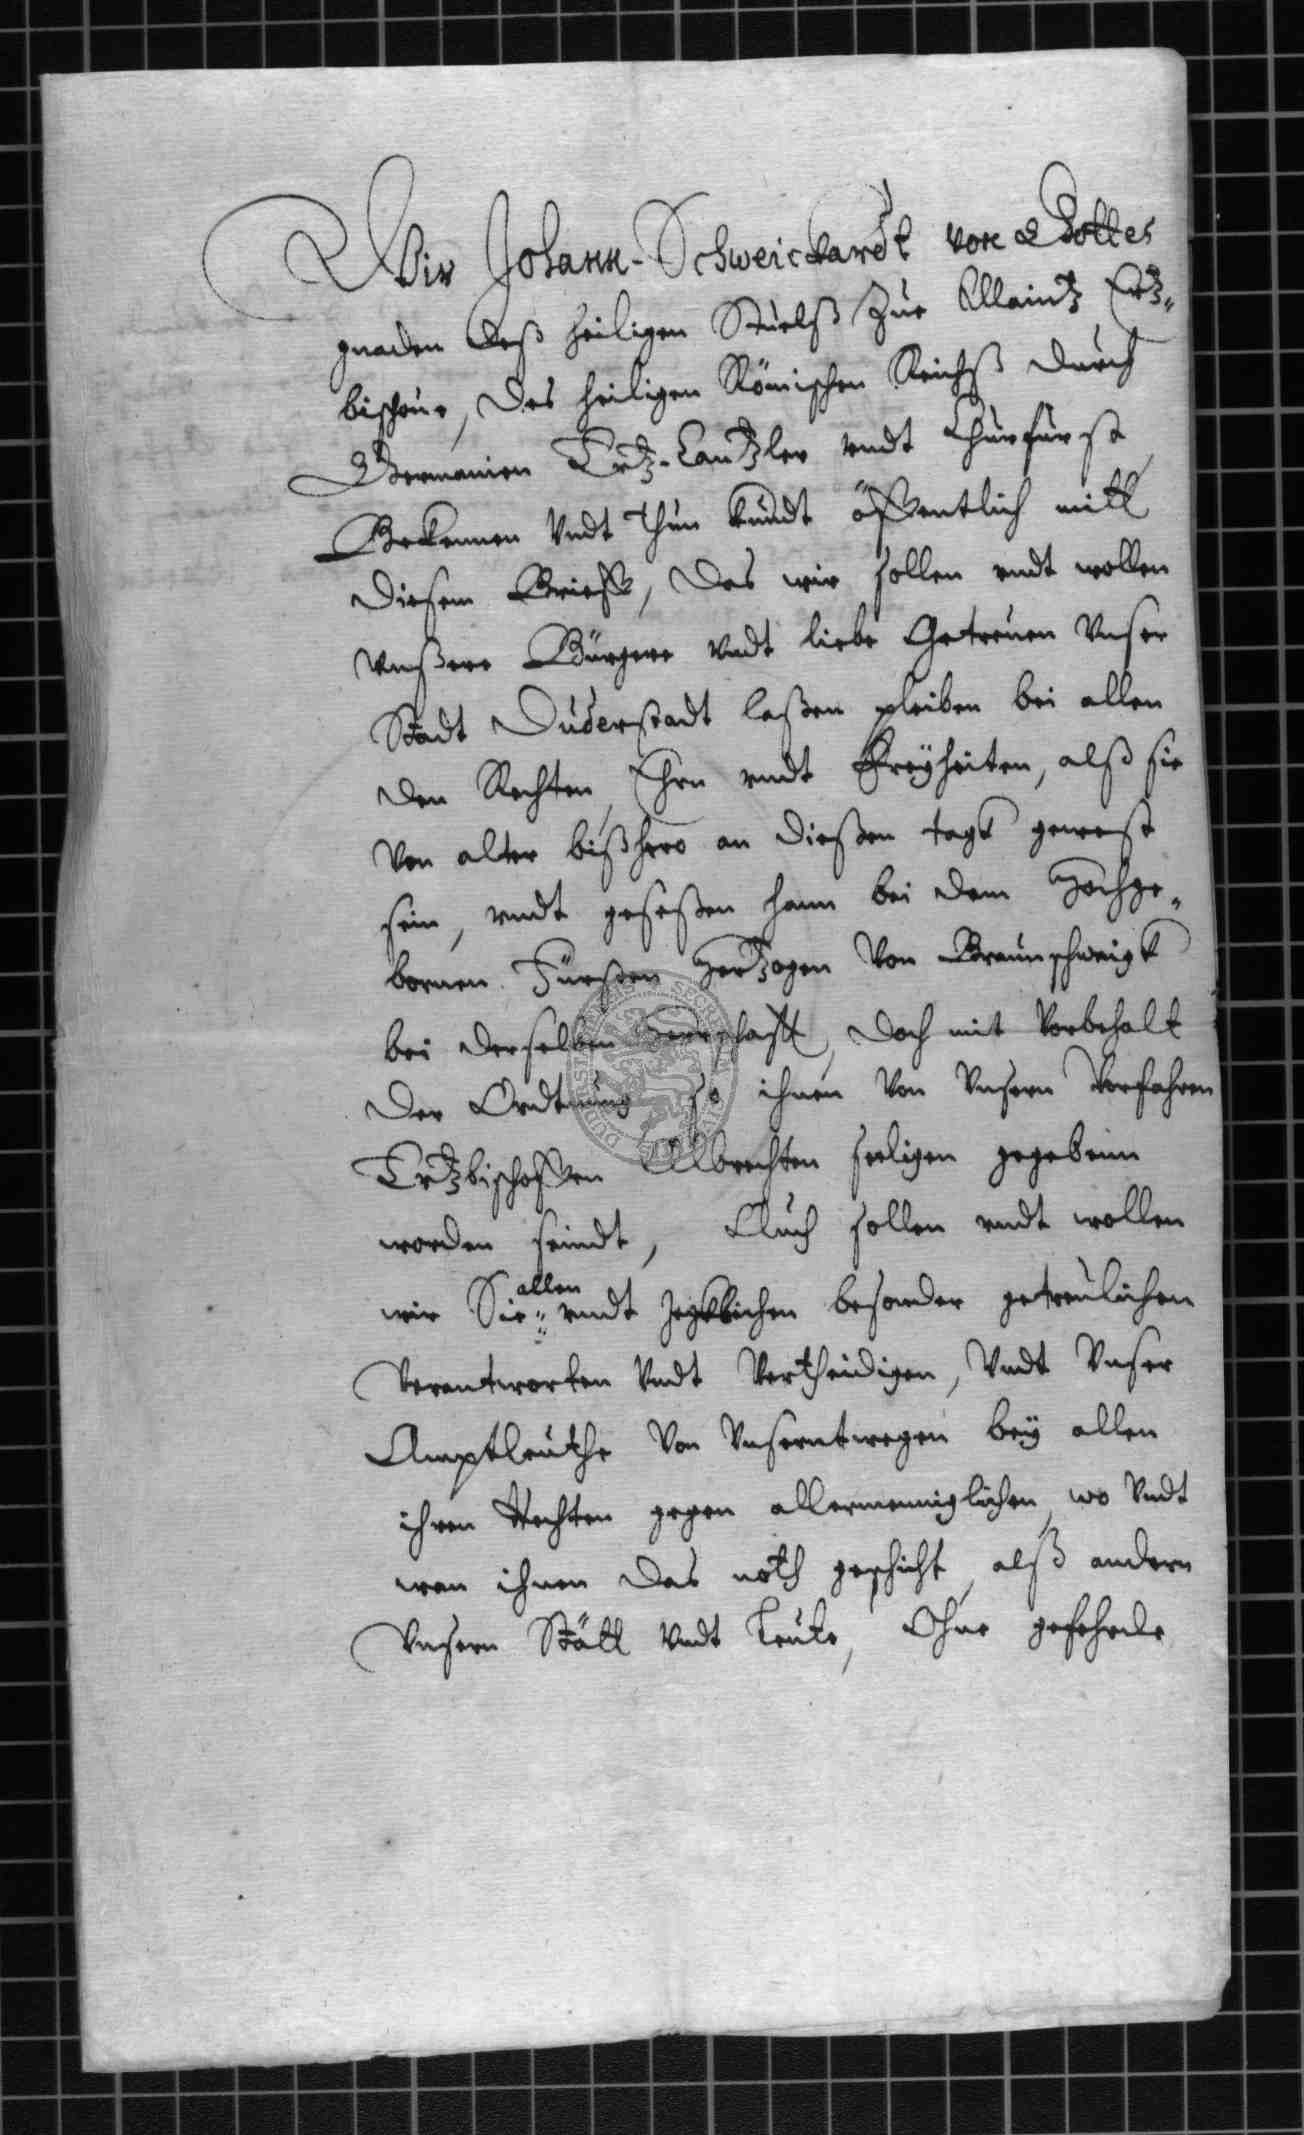 Wir Johann-Schweickardt von Gottes
gnaden deß heiligen Stuelß Zue Maintz Ertz-
bischoue, des heiligen Römischen Reichß durch
Germanien Ertz-Cantzler vndt Churfürst
Bekennen Vndt Thun kundt öffentlich mitt
diesem Brieff, das wir sollen vndt wollen
vnßere Bürgere vndt liebe Getreuen Vnser
Stadt Duderstadt laßen pleiben bei allen
den Rechten, Ehrn vndt Freyheiten, alß sie
Von alter bißhero an dießen tagk gewest
sein, vndt geseßen hann bei dem Hochge-
bornen Fürsten Hertzogen Von Braunschweigk
bei derselben Herrschafft, doch mit Vorbehalt
der Ordtnung so ihnen Von Vnsern Vorfahren
Ertzbischoffen Albrechten seeligen gegebenn
worden seindt, Auch sollen vndt wollen
wir Sie allen vndt Jezlichen besonder getreulichen
Verantworten Vndt Vertheidigen, Vndt Vnser
Amptleuthe Von Vnserntwegen bey allen
ihren Rechten gegen allermenniglichen, wo Vndt
wan ihnen das noth geschicht, alß andern
Vnsern Stätt Vndt Leute, Ohne gefehrde